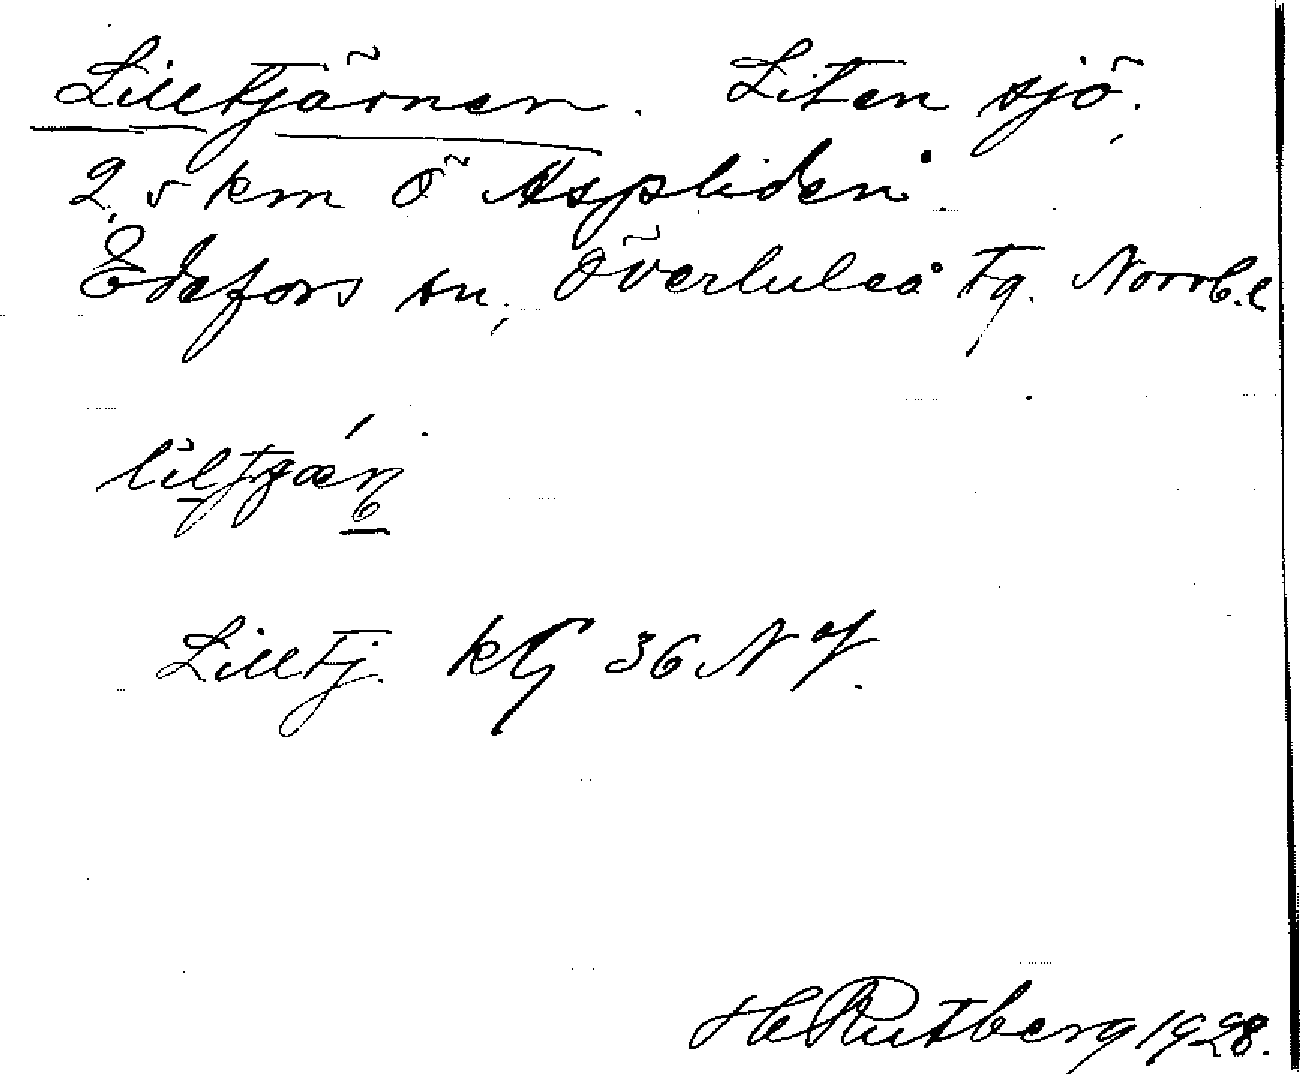 Lilltjärnen. Liten sjö,
2,5 km Ö Aspliden.
Edefors sn, Överluleå tg. Norrb.l
Lilltj. 36 NV.
H Rutberg 1928.